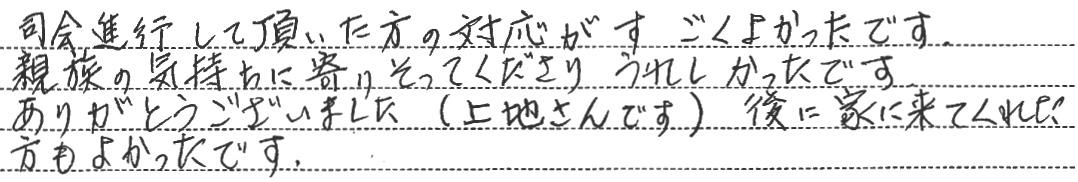 司会進行して頂いた方の対応がすごくよかったです.
親族の気持ちに寄りそってくださり うれしかったです
ありがとうございました(上地さんです)後に家に来てくれた
方もよかったです.